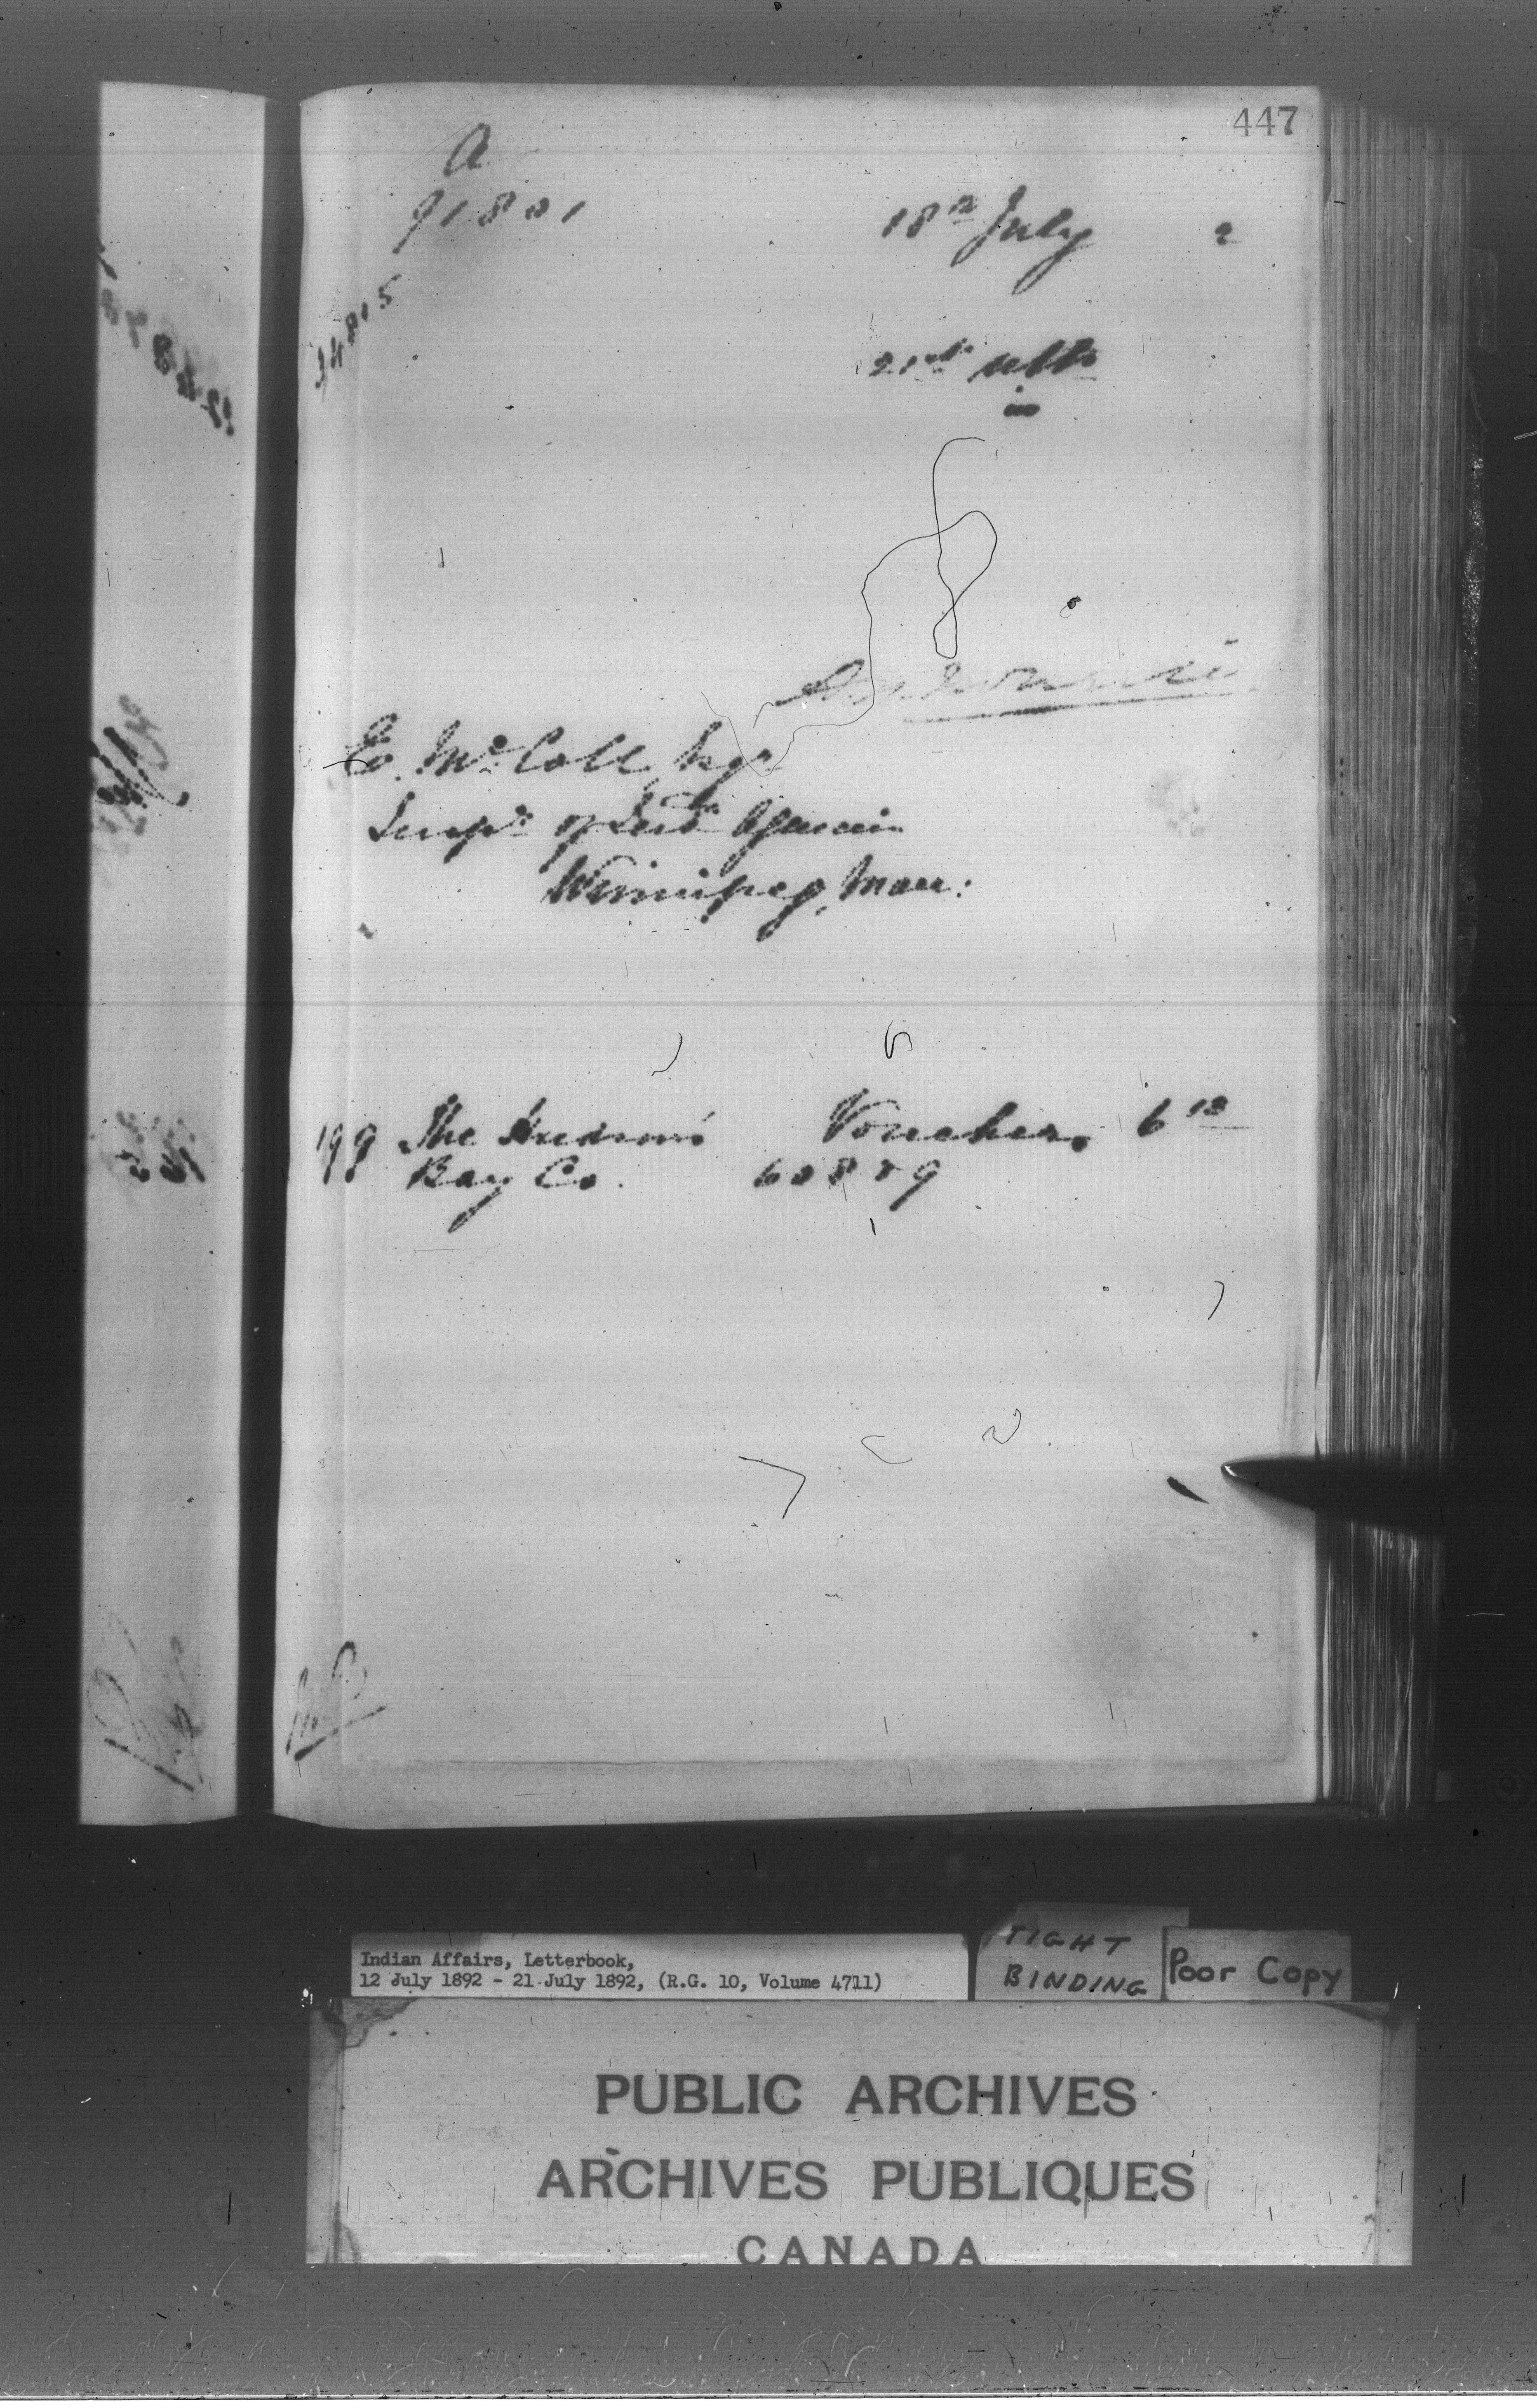 447
A
91801
18th July 2
34815
21st ulto
in
E. McColl, Esqr
Insptr of Ind Agencies
Winnipeg, Man:
199 The Hudson's Voucher 6 12
Bay Co. 60889
Indian Affairs, Letterbook,
12 July 1892 - 21 July 1892, (R.G. 10, Volume 4711)
TIGHT
BINDING
Poor Copy
PUBLIC ARCHIVES
ARCHIVES PUBLIQUES
CANADA